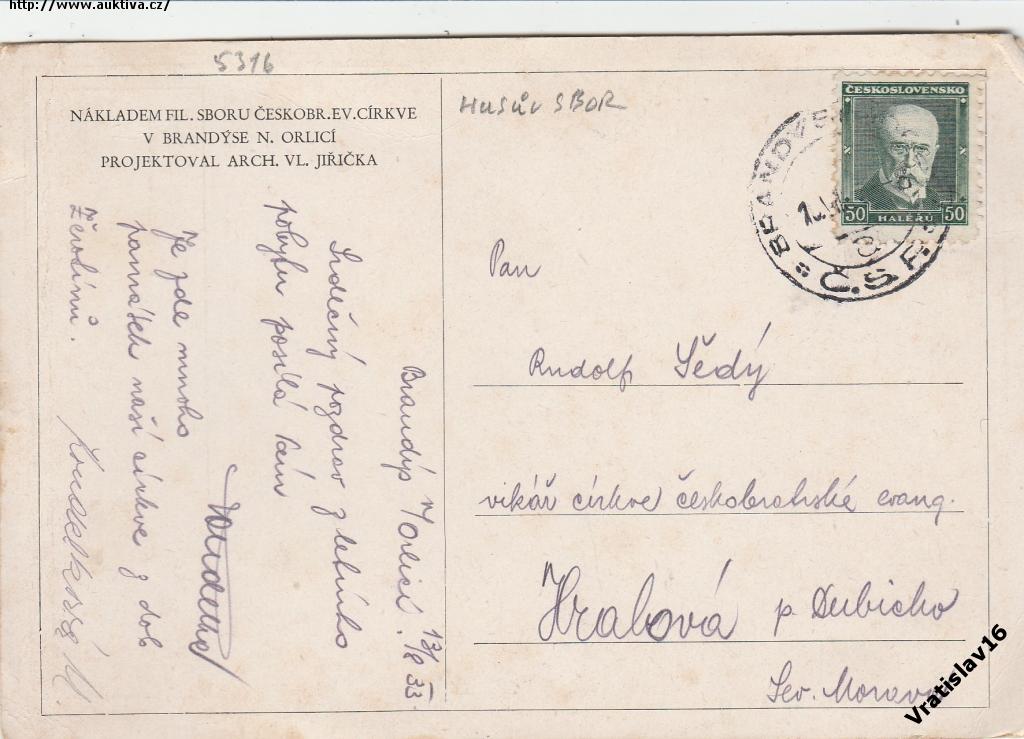 http://www.auktiva.cz/
5316
NÁKLADEM FIL. SBORU ČESKOBR. EV. CÍRKVE
V BRANDÝSE N. ORLICÍ
PROJEKTOVAL ARCH. VL. JIŘIČKA
HUSŮV SBOR
ČESKOSLOVENSKO
50 HALÉŘŮ 50
Č.S.R.
Brandýs n/Orlicí. 13/8 33
Srdečný pozdrav z letního
pobytu posílá Vám
Je zde mnoho
památek naší církve z dob
Žerotínů.
Pan
Rudolf Šedý
vikář církve českobratrské evang.
Hrabová p. Dubicko
Sev. Morava
Vratislav16